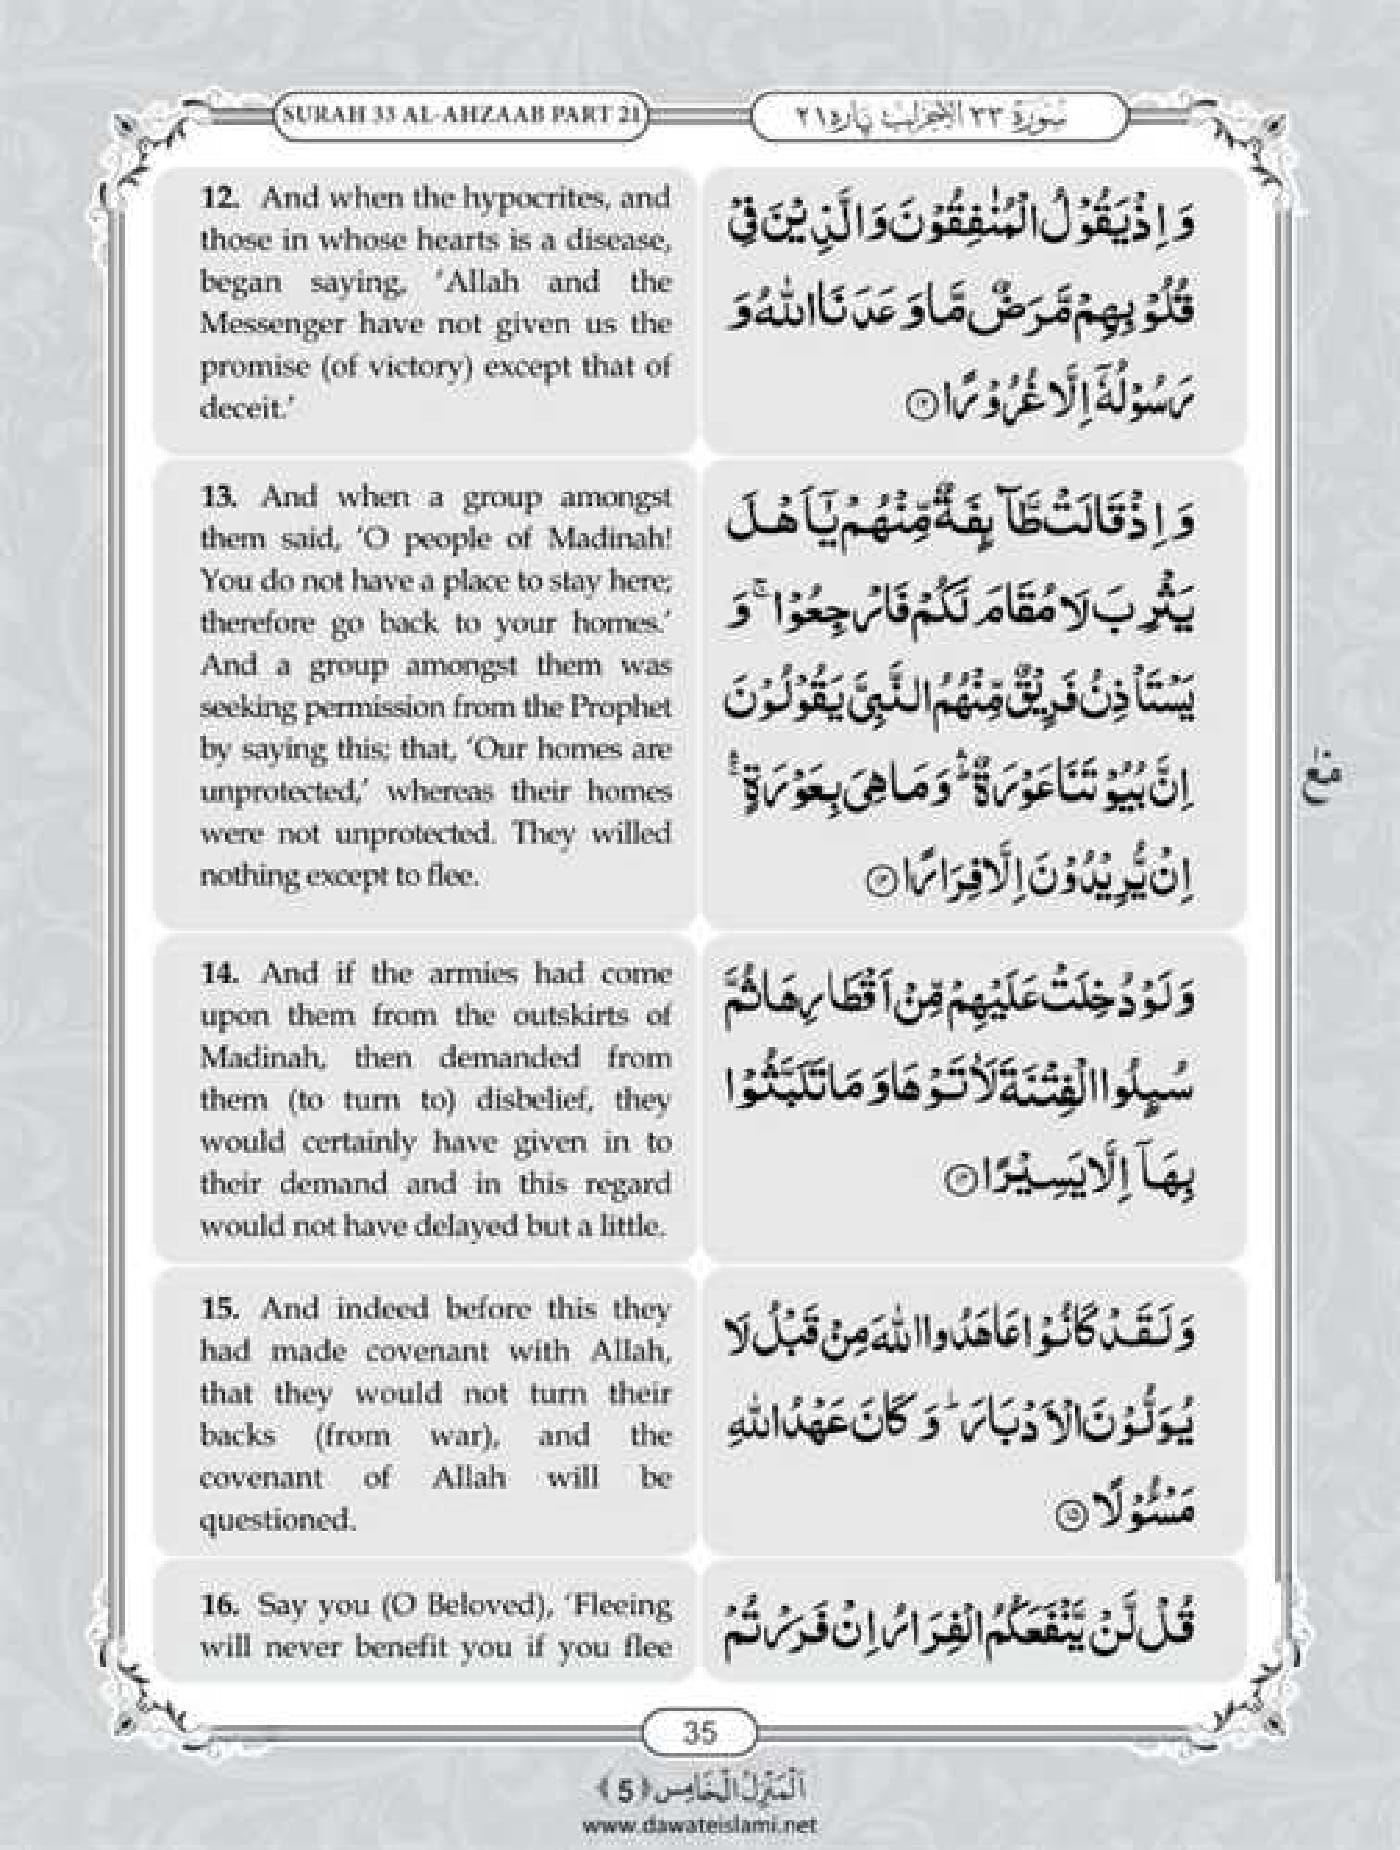 SURAH 33 AL-AHZAAB PART 21
سورة ٣٣ الاحزاب پاره ٢١
12. And when the hypocrites, and
those in whose hearts is a disease,
began saying, ‘Allah and the
Messenger have not given us the
promise (of victory) except that of
deceit.’
وَ اِذْ یَقُوْلُ الْمُنٰفِقُوْنَ وَ الَّذِیْنَ فِیْ
قُلُوْبِهِمْ مَّرَضٌ مَّا وَعَدَنَا اللّٰهُ وَ
رَسُوْلُهٗۤ اِلَّا غُرُوْرًا ﴿۱۲﴾
13. And when a group amongst
them said, ‘O people of Madinah!
You do not have a place to stay here;
therefore go back to your homes.’
And a group amongst them was
seeking permission from the Prophet
by saying this; that, ‘Our homes are
unprotected,’ whereas their homes
were not unprotected. They willed
nothing except to flee.
وَ اِذْ قَالَتْ طَّآىٕفَةٌ مِّنْهُمْ یٰۤاَهْلَ
یَثْرِبَ لَا مُقَامَ لَكُمْ فَارْجِعُوْا ۚ وَ
یَسْتَاْذِنُ فَرِیْقٌ مِّنْهُمُ النَّبِیَّ یَقُوْلُوْنَ
اِنَّ بُیُوْتَنَا عَوْرَةٌ ۛؕ وَ مَا هِیَ بِعَوْرَةٍ ۛۚ
اِنْ یُّرِیْدُوْنَ اِلَّا فِرَارًا ﴿۱۳﴾
14. And if the armies had come
upon them from the outskirts of
Madinah, then demanded from
them (to turn to) disbelief, they
would certainly have given in to
their demand and in this regard
would not have delayed but a little.
وَ لَوْ دُخِلَتْ عَلَیْهِمْ مِّنْ اَقْطَارِهَا ثُمَّ
سُىٕلُوا الْفِتْنَةَ لَاٰتَوْهَا وَ مَا تَلَبَّثُوْا
بِهَاۤ اِلَّا یَسِیْرًا ﴿۱۴﴾
15. And indeed before this they
had made covenant with Allah,
that they would not turn their
backs (from war), and the
covenant of Allah will be
questioned.
وَ لَقَدْ كَانُوْا عَاهَدُوا اللّٰهَ مِنْ قَبْلُ لَا
یُوَلُّوْنَ الْاَدْبَارَ ؕ وَ كَانَ عَهْدُ اللّٰهِ
مَسْـُٔوْلًا ﴿۱۵﴾
16. Say you (O Beloved), ‘Fleeing
will never benefit you if you flee
قُلْ لَّنْ یَّنْفَعَكُمُ الْفِرَارُ اِنْ فَرَرْتُمْ
35
اَلْمَنْزِلُ الْخَامِس ﴿5﴾
www.dawateislami.net